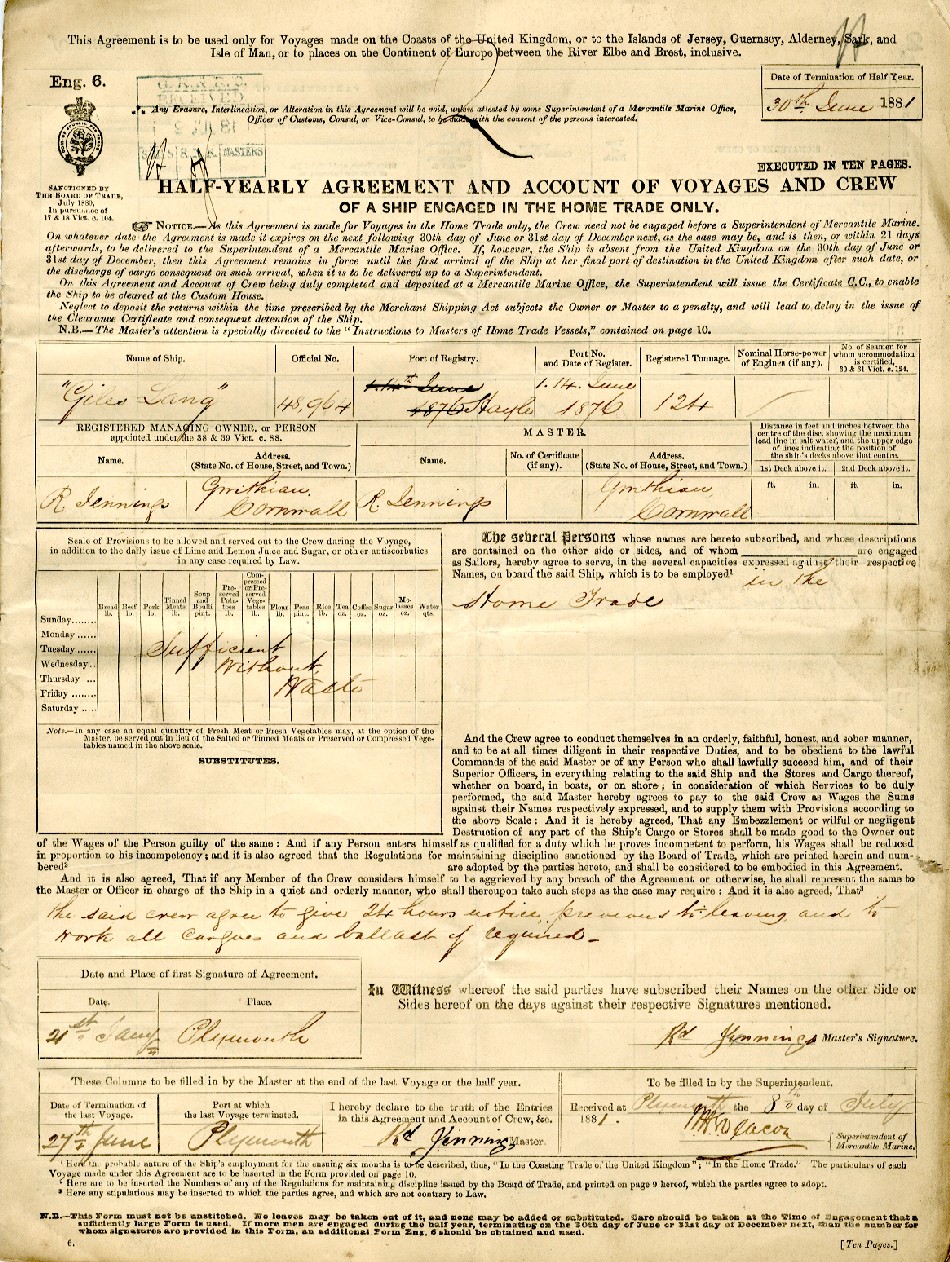 This Agreement is to be used only for Voyages made on the Coasts of the United Kingdom, or to the Islands of Jersey, Guernsey, Alderney, Sark, and
Isle of Man, or to places on the Continent of Europe between the River Elbe and Brest, inclusive.
Eng. 6.
Date of Termination of Half Year.
30th June 1881
Any Erasure, Interlineation, or Alteration in this Agreement will be void, unless attested by some Superintendent of a Mercantile Marine Office,
Officer of Customs, Consul, or Vice-Consul, to be made with the consent of the persons interested.
SANCTIONED BY
THE BOARD OF TRADE,
July 1880,
In pursuance of
17 & 18 Vict. c. 104.
EXECUTED IN TEN PAGES.
HALF-YEARLY AGREEMENT AND ACCOUNT OF VOYAGES AND CREW
OF A SHIP ENGAGED IN THE HOME TRADE ONLY.
NOTICE.—As this Agreement is made for Voyages in the Home Trade only, the Crew need not be engaged before a Superintendent of Mercantile Marine.
On whatever date the Agreement is made it expires on the next following 30th day of June or 31st day of December next, as the case may be, and is then, or within 21 days
afterwards, to be delivered to the Superintendent of a Mercantile Marine Office. If, however, the Ship is absent from the United Kingdom on the 30th day of June or
31st day of December, then this Agreement remains in force until the first arrival of the Ship at her final port of destination in the United Kingdom after such date, or
the discharge of cargo consequent on such arrival, when it is to be delivered up to a Superintendent.
On this Agreement and Account of Crew being duly completed and deposited at a Mercantile Marine Office, the Superintendent will issue the Certificate C.C., to enable
the Ship to be cleared at the Custom House.
Neglect to deposit the returns within the time prescribed by the Merchant Shipping Act subjects the Owner or Master to a penalty, and will lead to delay in the issue of
the Clearance Certificate and consequent detention of the Ship.
N.B.—The Master's attention is specially directed to the "Instructions to Masters of Home Trade Vessels," contained on page 10.
Name of Ship. Official No. Port of Registry. Port No. and Date of Register. Registered Tonnage. Nominal Horse-power of Engines (if any). No. of Seamen for whom accommodation is certified, 30 & 31 Vict. c. 124.
"Giles Lang" 48,964 1.14 June 1876 Hayle 1.14. June 1876 124
REGISTERED MANAGING OWNER, or PERSON
appointed under the 38 & 39 Vict. c. 88.
MASTER.
Distance in feet and inches between the
centre of the disc, showing the maximum
load line in salt water, and the upper edge
of lines indicating the position of
the ship's decks above that centre.
Name. Address. (State No. of House, Street, and Town.) Name. No. of Certificate (if any). Address. (State No. of House, Street, and Town.) 1st Deck above it. 2nd Deck above it.
ft. in. ft. in.
R Jennings Gwithian Cornwall R Jennings Gwithian Cornwall
Scale of Provisions to be allowed and served out to the Crew during the Voyage,
in addition to the daily issue of Lime and Lemon Juice and Sugar, or other antiscorbutics
in any case required by Law.
Bread lb. Beef lb. Pork lb. Tinned Meats lb. Soup and Bouilli pint. Preserved Potatoes lb. Compressed or Preserved Vegetables lb. Flour lb. Peas pint. Rice lb. Tea oz. Coffee oz. Sugar oz. Molasses oz. Water qts.
Sunday......
Monday ......
Tuesday ......
Wednesday..
Thursday ....
Friday ........
Saturday .....
Sufficient
Without
Waste
Note.—In any case an equal quantity of Fresh Meat or Fresh Vegetables may, at the option of the
Master, be served out in lieu of the Salted or Tinned Meats or Preserved or Compressed Vege-
tables named in the above scale.
SUBSTITUTES.
The several Persons whose names are hereto subscribed, and whose descriptions
are contained on the other side or sides, and of whom are engaged
as Sailors, hereby agree to serve, in the several capacities expressed against their respective
Names, on board the said Ship, which is to be employed¹ in the
Home Trade
And the Crew agree to conduct themselves in an orderly, faithful, honest, and sober manner,
and to be at all times diligent in their respective Duties, and to be obedient to the lawful
Commands of the said Master or of any Person who shall lawfully succeed him, and of their
Superior Officers, in everything relating to the said Ship and the Stores and Cargo thereof,
whether on board, in boats, or on shore; in consideration of which Services to be duly
performed, the said Master hereby agrees to pay to the said Crew as Wages the Sums
against their Names respectively expressed, and to supply them with Provisions according to
the above Scale: And it is hereby agreed, That any Embezzlement or wilful or negligent
Destruction of any part of the Ship's Cargo or Stores shall be made good to the Owner out
of the Wages of the Person guilty of the same: And if any Person enters himself as qualified for a duty which he proves incompetent to perform, his Wages shall be reduced
in proportion to his incompetency; and it is also agreed that the Regulations for maintaining discipline sanctioned by the Board of Trade, which are printed herein and num-
bered² are adopted by the parties hereto, and shall be considered to be embodied in this Agreement.
And it is also agreed, That if any Member of the Crew considers himself to be aggrieved by any breach of the Agreement or otherwise, he shall represent the same to
the Master or Officer in charge of the Ship in a quiet and orderly manner, who shall thereupon take such steps as the case may require: And it is also agreed, That³
the said crew agree to give 24 hours notice previous to leaving and to
work all cargoes and ballast if required.
Date and Place of first Signature of Agreement.
Date. Place.
21st Jany Plymouth
In Witness whereof the said parties have subscribed their Names on the other Side or
Sides hereof on the days against their respective Signatures mentioned.
Rd Jennings Master's Signature.
These Columns to be filled in by the Master at the end of the last Voyage or the half year.
To be filled in by the Superintendent.
Date of Termination of the last Voyage. Port at which the last Voyage terminated. I hereby declare to the truth of the Entries in this Agreement and Account of Crew, &c.
27th June Plymouth Rd Jennings Master.
Received at Plymouth the 8th day of July
1881.
Superintendent of
Mercantile Marine.
¹ Here the probable nature of the Ship's employment for the ensuing six months is to be described, thus, "In the Coasting Trade of the United Kingdom"; "In the Home Trade." The particulars of each
Voyage made under this Agreement are to be inserted in the Form provided on page 10.
² Here are to be inserted the Numbers of any of the Regulations for maintaining discipline issued by the Board of Trade, and printed on page 9 hereof, which the parties agree to adopt.
³ Here any stipulations may be inserted to which the parties agree, and which are not contrary to Law.
N.B.—This Form must not be unstitched. No leaves may be taken out of it, and none may be added or substituted. Care should be taken at the Time of Engagement that a
sufficiently large Form is used. If more men are engaged during the half year, terminating on the 30th day of June or 31st day of December next, than the number for
whom signatures are provided in this Form, an additional Form Eng. 6 should be obtained and used.
6.
[Ten Pages.]